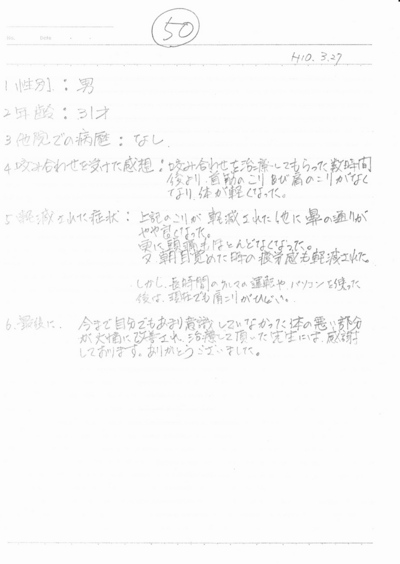 50
NO.
DATE
H10. 3.27
1 性別：男
2 年齢：31才
3 他院での病歴：なし
4 咬み合わせを受けた感想：咬み合わせを治療してもらった数時間
後より、首筋のこり及び肩のこりがなく
なり、体が軽くなった。
5 軽減された症状：上記のこりが軽減された他に鼻の通りが
やや良くなった。
更に頭痛もほとんどなくなった。
又朝目覚めた時の疲労感も軽減された。
しかし、長時間のクルマの運転やパソコンを使った
後は、現在でも肩こりがひどい。
6. 最後に、 今まで自分でもあまり意識していなかった体の悪い部分
が大幅に改善され、治療して頂いた先生には、感謝
しております。ありがとうございました。